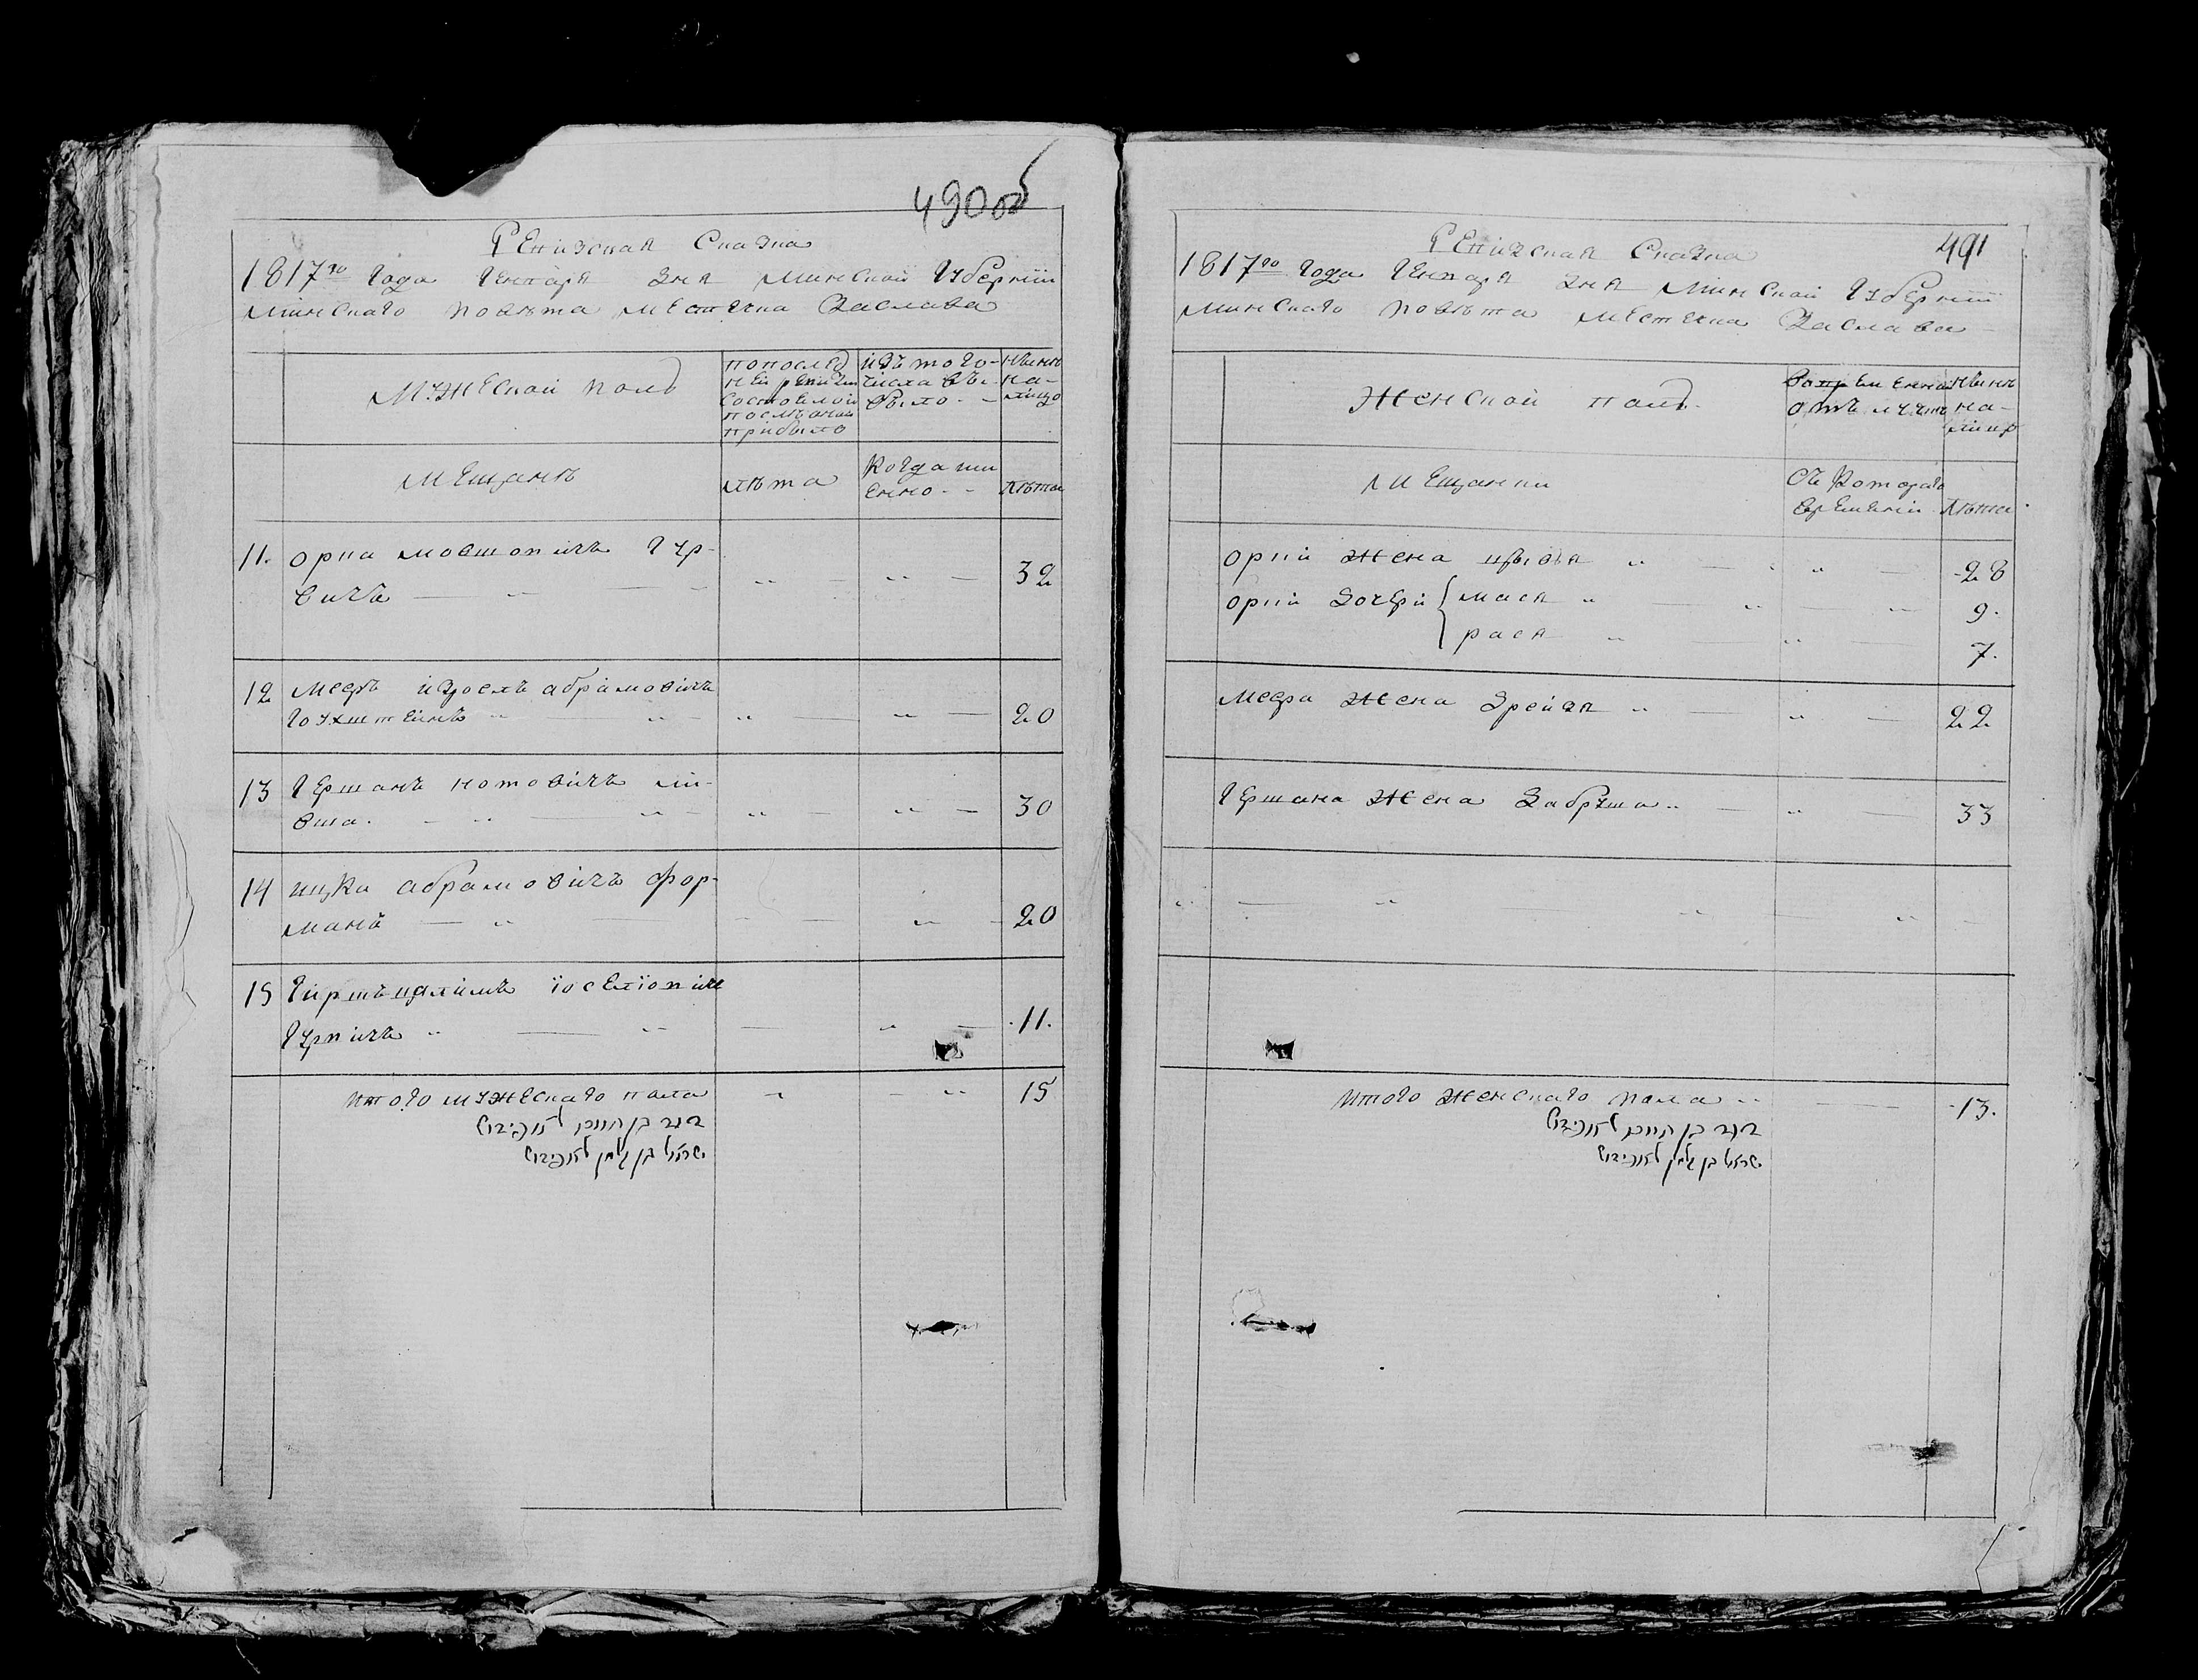 490 об
Ревизская Сказка
1817го Года Генваря дня Минской Губернiи
Минскаго повѣта местечка Заслава
Мужеской полъ
попослед
ней ревизiи
состояло и
после оной
прибыло
изъ того
числа вы
было
Нынѣ
на
лицо
Мещанъ
лѣта
Когда им
енно
лѣта
11. орка мовшовичъ Гур-
вичъ 32
12 мееръ израель абрамовичъ
20
13 Гершанъ нотовичъ ли-
вша. 30
14 ицка абрамовичъ фор-
манъ 20
15 Гиршъ цалимъ iоселiовичъ
Гурвичъ 11.
Итого мужескаго пола 15
491
Ревизская Сказка
1817го Года Генваря дня Минской Губернiи
Минскаго повѣта местечка Заслава
Женской полъ
во временной
отълучке
Нынѣ
на-
лицо
Мещанки
Съ Котораго
времени
лѣта
орки жена цывья 28
орки дочери { мася 9.
рася 7.
меера жена дрейзя 22
Гершана жена дабруша 33
Итого женскаго пола 13.